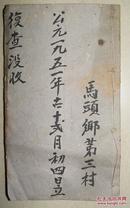 馬頭鄉第三村
公元一九五一年古十弍月初四日立
復查没收